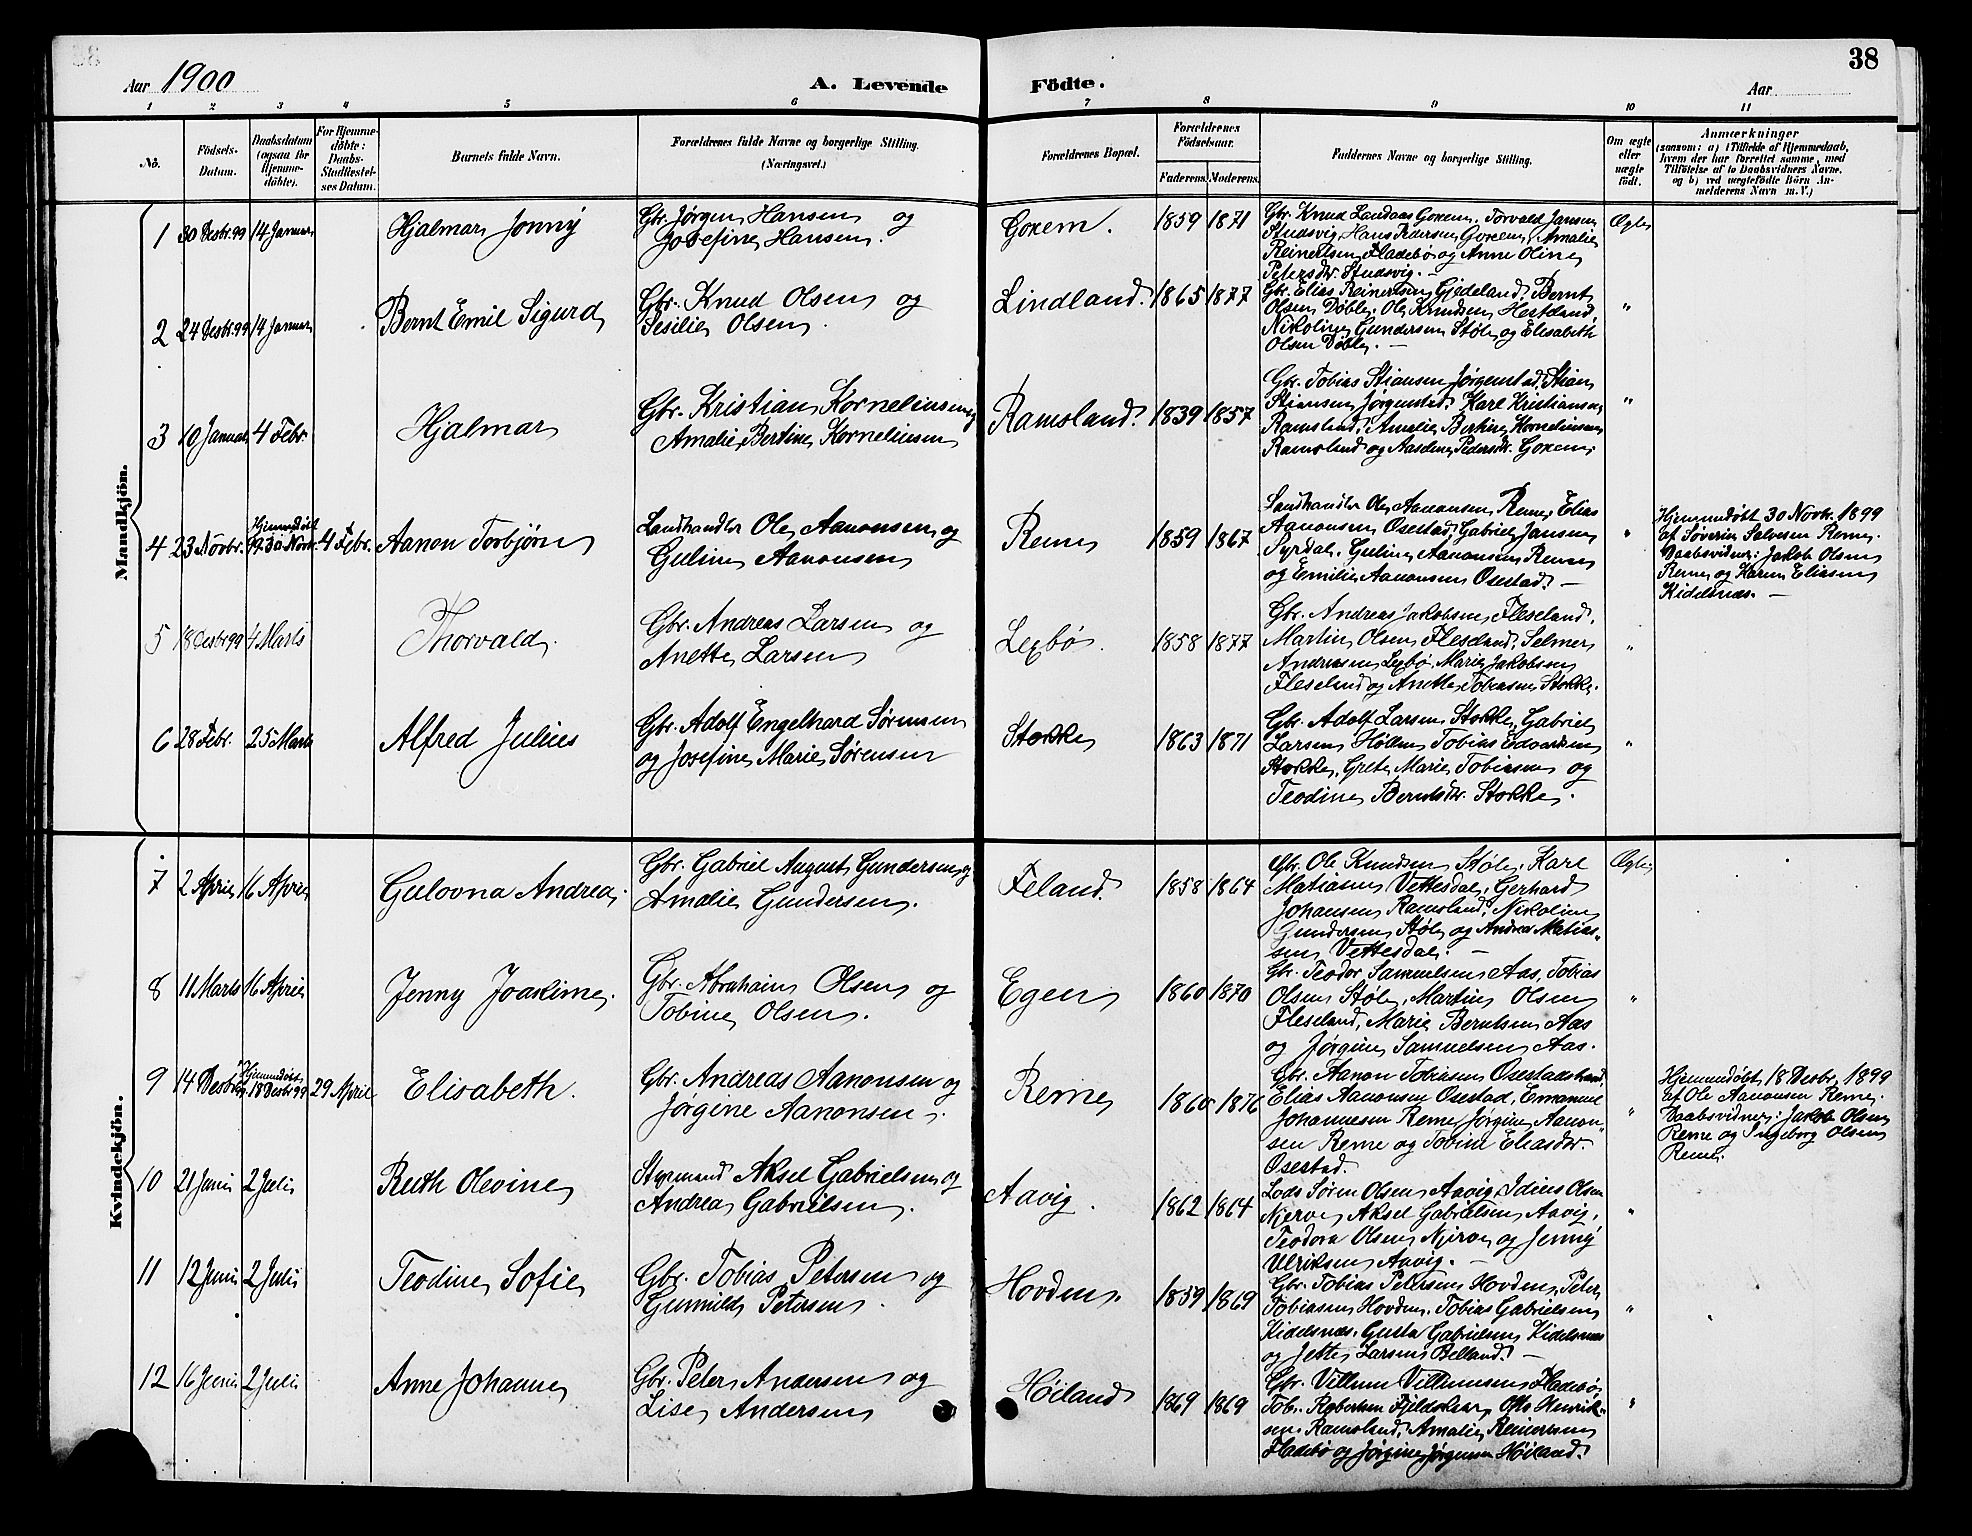 38
Aar 1900
A. Levende
Födte.
Aar
1 2 3 4 5 6 7 8 9 10 11
No.
Födsels-
Datum.
Daabsdatum
(ogsaa for
Hjemme-
döbte).
For Hjemme-
döbte:
Daabs-
Stadfæstel-
ses Datum.
Barnets fulde Navn.
Forældrenes fulde Navne og borgerlige Stilling.
(Næringsvei.)
Forældrenes Bopæl.
Forældrenes
Födselsaar.
Faderens. Moderens.
Faddernes Navne og borgerlige Stilling.
Om ægte
eller
uægte
födt.
Anmærkninger
(saasom: a) i Tilfælde af Hjemmedaab,
hvem der har forrettet samme, med
Tilföielse af to Daabsvidners Navne,
og b) ved uægtefödte Börn An-
melderens Navn m. V.)
Mandkjön.
1 30 Desbr 99 14 Januar
Hjalmar Jonny
Gbr. Jørgen Hansen og
Josefine Hansen.
Goxem.
1859 1871
Gbr. Knud Landaas Goxem, Torvald Jansen
Studsvig, Hans Pedersen Goxem, Amalie
Reinertsen Fladebø og Anne Oline
Petersdtr. Studsvig. —
Ægte
2 24 Desbr 99 14 Januar
Bernt Emil Sigurd
Gbr. Knud Olsen og
Sesilie Olsen.
Lindland.
1865 1877
Gbr. Elias Reinertsen Gjedeland, Bernt
Olsen Døble, Ole Knudsen Hestland,
Nikoline Gundersen Støle og Elisabeth
Olsen Døble. —
"
3 10 Januar 4 Febr.
Hjalmar
Gbr. Kristian Korneliusen og
Amalie Bertine Korneliusen
Ramsland.
1839 1857
Gbr. Tobias Stiansen Jørgenstad, Stian
Stiansen Jørgenstad, Karl Kristiansen
Ramsland, Amalie Bertine Korneliusen
Ramsland og Aasdine Pedersdtr. Goxem.
"
4 23 Novbr. Hjemmedøbt
99 30 Novbr. 4 Febr.
Aanon Torbjørn
Landhandler Ole Aanonsen og
Guline Aanonsen
Reme
1859 1867
Landhandler Ole Aanonsen Reme, Elias
Aanonsen Osestad, Gabriel Jansen
Syrdal, Guline Aanonsen Reme
og Emilie Aanonsen Osestad. —
"
Hjemmedøbt 30 Novbr. 1899
af Søverin Salvesen Reme.
Daabsvidner: Jakob Olsen
Reme og Karen Eliasen
Kidelsnæs. —
5 18 Desbr 99 4 Marts
Thorvald.
Gbr. Andreas Larsen og
Anette Larsen
Lexbø.
1858 1877
Gbr. Andreas Jakobsen Fleseland,
Martin Olsen Fleseland, Selmer
Andreasen Lexbø, Marie Jakobsen
Fleseland og Anette Tobiasen Stokke.
"
6 28 Febr. 25 Marts
Alfred Julius
Gbr. Adolf Engelhard Sørensen
og Josefine Marie Sørensen
Stokke
1863 1871
Gbr. Adolf Larsen Stokke, Gabriel
Larsen Høllen, Tobias Edvardsen
Stokke, Grete Marie Tobiasen og
Teodine Berntsdtr. Stokke.
"
Kvindekjön.
7 2 April 16 April
Gulovna Andrea.
Gbr. Gabriel August Gundersen og
Amalie Gundersen.
Feland.
1858 1864
Gbr. Ole Knudsen Støle, Karl
Matiasen Vettesdal, Gerhard
Johansen Ramsland, Nikoline
Gundersen Støle og Andrea Matias-
sen Vettesdal. —
Ægte
8 11 Marts 16 April
Jenny Joakime.
Gbr. Abraham Olsen og
Tobine Olsen.
Egen
1860 1870
Gbr. Teodor Samuelsen Aas, Tobias
Olsen Støle, Martin Olsen
Fleseland, Marie Berntsen Aas
og Jørgine Samuelsen Aas.
"
9 14 Desbr Hjemmedøbt
18 Desbr 99 29 April
Elisabeth.
Gbr. Andreas Aanonsen og
Jørgine Aanonsen.
Reme
1860 1876
Gbr. Aanon Tobiasen Osestadstrand,
Elias Aanonsen Osestad, Emanuel
Johannesen Reme, Jørgine Aanon-
sen Reme og Tobine Eliasdtr.
Osestad.
"
Hjemmedøbt 18 Desbr. 1899
af Ole Aanonsen Reme.
Daabsvidner: Jakob Olsen
Reme og Ingeborg Olsen
Reme.
10 21 Juni 2 Juli
Ruth Olevine
Styrmand Aksel Gabrielsen og
Andrea Gabrielsen.
Aavig.
1862 1864
Lods Søren Olsen Aavig, Idius Olsen
Njerve, Aksel Gabrielsen Aavig,
Teodora Olsen Njerve og Jenny
Ulriksen Aavig. —
"
11 12 Juni 2 Juli
Teodine Sofie
Gbr. Tobias Petersen og
Gunnild Petersen.
Hovden.
1859 1869
Gbr. Tobias Petersen Hovden, Peter
Tobiasen Hovden, Tobias Gabrielsen
Kidelsnæs, Gusta Gabrielsen Kidelsnæs
og Jette Larsen Belland. —
"
12 16 Juni 2 Juli
Anne Johanne
Gbr. Peter Andersen og
Lise Andersen
Høiland
1869 1869
Gbr. Villum Villumsen Fladebø,
Tob. Robertsen Fjeldskaar, Ole Henrik-
sen Ramsland, Amalie Reinertsen
Fladebø og Jørgine Jørgensen Høiland.
"